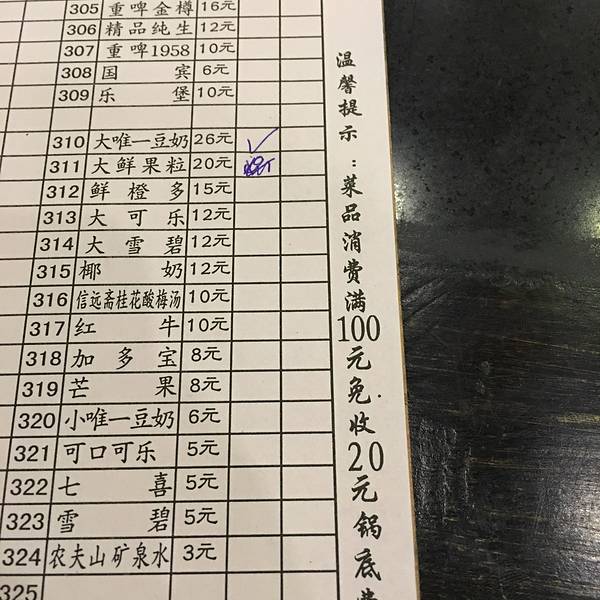 305 重啤金樽 16元
306 精品纯生 12元
307 重啤1958 10元
308 国宾 6元
309 乐堡 10元
310 大唯一豆奶 26元
311 大鲜果粒 20元
312 鲜橙多 15元
313 大可乐 12元
314 大雪碧 12元
315 椰奶 12元
316 信远斋桂花酸梅汤 10元
317 红牛 10元
318 加多宝 8元
319 芒果 8元
320 小唯一豆奶 6元
321 可口可乐 5元
322 七喜 5元
323 雪碧 5元
324 农夫山矿泉水 3元
325
温馨提示:菜品消费满100元免收20元锅底费